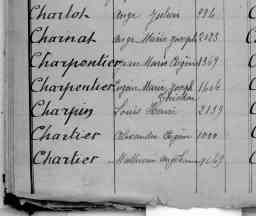 Charlot Ange Julien 996
Charnat Ange Marie Joseph 2125
Charpentier Marie Eugène 1369
Charpentier Eugène Marie Joseph 1616
Christian
Charpin Louis Henri 2159
Chartier Alexandre Eugène 1090
Chartier Mathurin